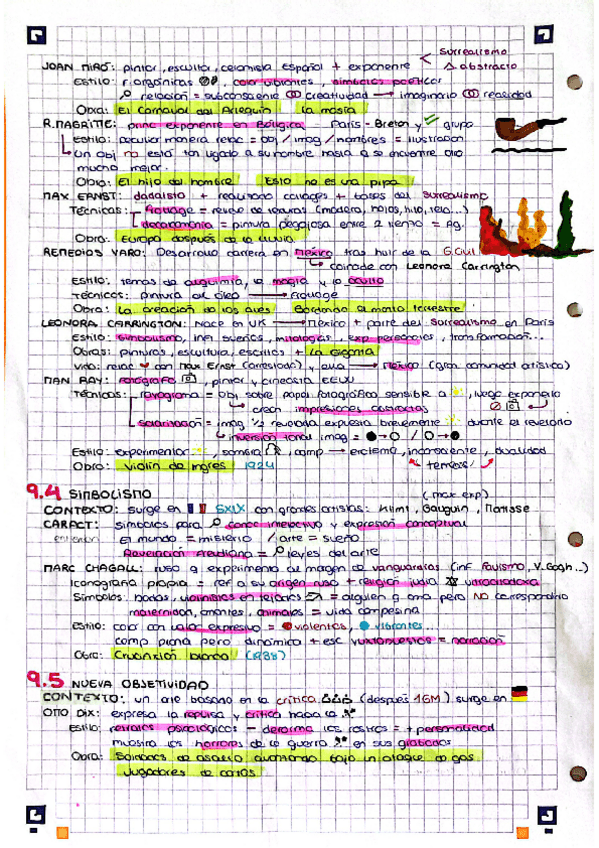 JOAN MIRÓ: pintor, escultor, ceramista español + exponente < Surrealismo
abstracto
Estilo: r. orgánicas, color vibrantes, símbolos poéticos
relación = subconsciente creatividad → imaginario realidad
Obra: El Carnaval del Arlequín La masía
R. MAGRITTE: princ exponente en Bélgica París - Breton y grupo
Estilo: peculiar manera relac = obj / imag / nombres = ilustrador
Un obj no está tan ligado a su nombre hasta q se encuentre otro
mucho mejor.
Obra: El hijo del hombre Esto no es una pipa
MAX ERNST: dadaísta + resultado collages + bases del Surrealismo
Técnicas: Frottage = relieve de texturas (madera, hojas, hilo, tela...)
decalcomanía = pintura pegajosa entre 2 lienzo = Ag.
Obra: Europa después de la lluvia
REMEDIOS VARO: Desarrolla carrera en México tras huir de la G.Civil
→ coincide con Leonora Carrington
Estilo: temas de alquimia, la magia y lo oculto
Técnicas: pintura al óleo → frottage
Obra: La creación de las aves Bordando el manto terrestre
LEONORA CARRINGTON: Nace en UK → México + parte del Surrealismo en París
Estilo: Simbolismo, inf sueños, mitologías, experiencias, transformación...
Obras: pinturas, escultura, escritos + La giganta
Vida: relac con Max Ernst (arrestado) y ella → México (gran comunidad artística)
MAN RAY: Fotógrafo, pintor y cineasta EEUU
Técnicas: Rayograma = obj sobre papel fotográfico sensible a, luego exponerlo
→ crean impresiones abstractas
solarización = imag ½ revelada expuesta brevemente durante el revelado
→ inversión tonal imag =
Estilo: experimentar, sombra, comp → erotismo, inconsciente, dualidad
temáticas
Obra: Violín de Ingres 1924
9.4 SIMBOLISMO
(max exp)
CONTEXTO: surge en SXIX con grandes artistas: Klimt, Gauguin, Matisse
CARACT: símbolos para conoc intelectivo y expresión conceptual
entienden El mundo = misterio / arte = sueño
Revelación freudiana = leyes del arte
MARC CHAGALL: ruso q experimenta al margen de vanguardias (inf Fauvismo, V.Gogh..)
Iconografía propia = ref a su origen ruso + religión judía
Símbolos: bodas, violinistas en tejados = alguien q ama pero NO correspondido
maternidad, amantes, animales = vida campesina
Estilo: color con valor expresivo = violentos, vibrantes...
comp plana pero dinámico + esc yuxtapuestas = narración
Obra: Crucifixión blanca (1938)
9.5 NUEVA OBJETIVIDAD
CONTEXTO: un arte basado en la crítica (después 1GM) surge en
OTTO DIX: expresa la repulsa y crítica hacia la
Estilo: retratos psicológicos - deforma los rostros = + personalidad
muestra los horrores de la guerra en sus grabados
Obra: Soldados de asalto avanzando bajo un ataque de gas
Jugadores de cartas